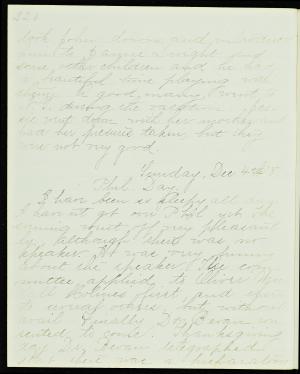 221
took John down and introduced
him to Fannie Wright and
some other children and he had
a beautiful time playing with
them. A good many went to
N.Y. during the vacation. Jessie
went down with her mother and
had her picture taken, but they
were not very good.
Sunday, Dec 4th
Phil. Day.
I have been so sleepy all day
I have not got one Phil yet. The
evening went off very pleasant-
ly, although there was no
speaker. It was very funny
about the speaker. The com-
mittee applied to Oliver
Holmes first, and
to several others, but without
avail. Finally Dr. Bevan con-
sented to come. Thanksgiving
day Dr. Bevan telegraphed
there was a